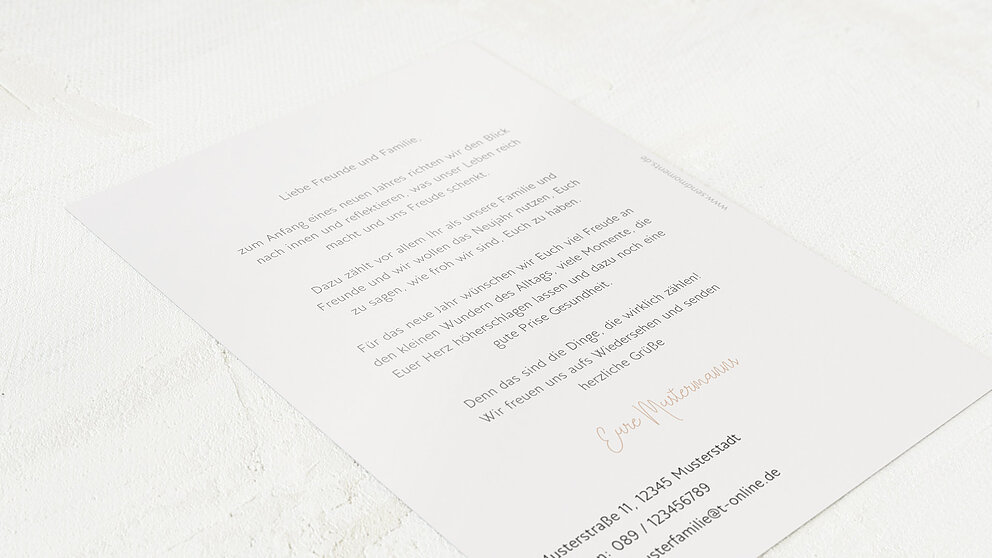 Liebe Freunde und Familie,
zum Anfang eines neuen Jahres richten wir den Blick
nach innen und reflektieren, was unser Leben reich
macht und uns Freude schenkt.
Dazu zählt vor allem Ihr als unsere Familie und
Freunde und wir wollen das Neujahr nutzen, Euch
zu sagen, wie froh wir sind, Euch zu haben.
Für das neue Jahr wünschen wir Euch viel Freude an
den kleinen Wundern des Alltags, viele Momente, die
Euer Herz höherschlagen lassen und dazu noch eine
gute Prise Gesundheit.
Denn das sind die Dinge, die wirklich zählen!
Wir freuen uns aufs Wiedersehen und senden
herzliche Grüße
Eure Mustermanns
Musterstraße 11, 12345 Musterstadt
n: 089 / 123456789
usterfamilie@t-online.de
www.sendmoments.de